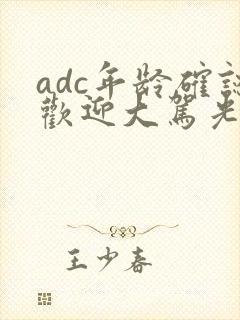 adc年龄確認
歡迎大駕光
王少春